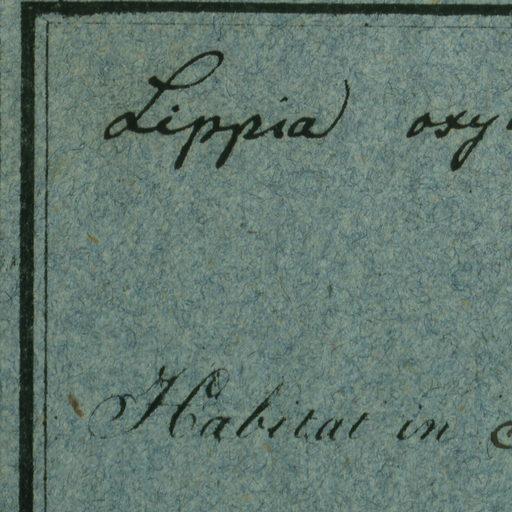 Lippia oxy
Habitat in